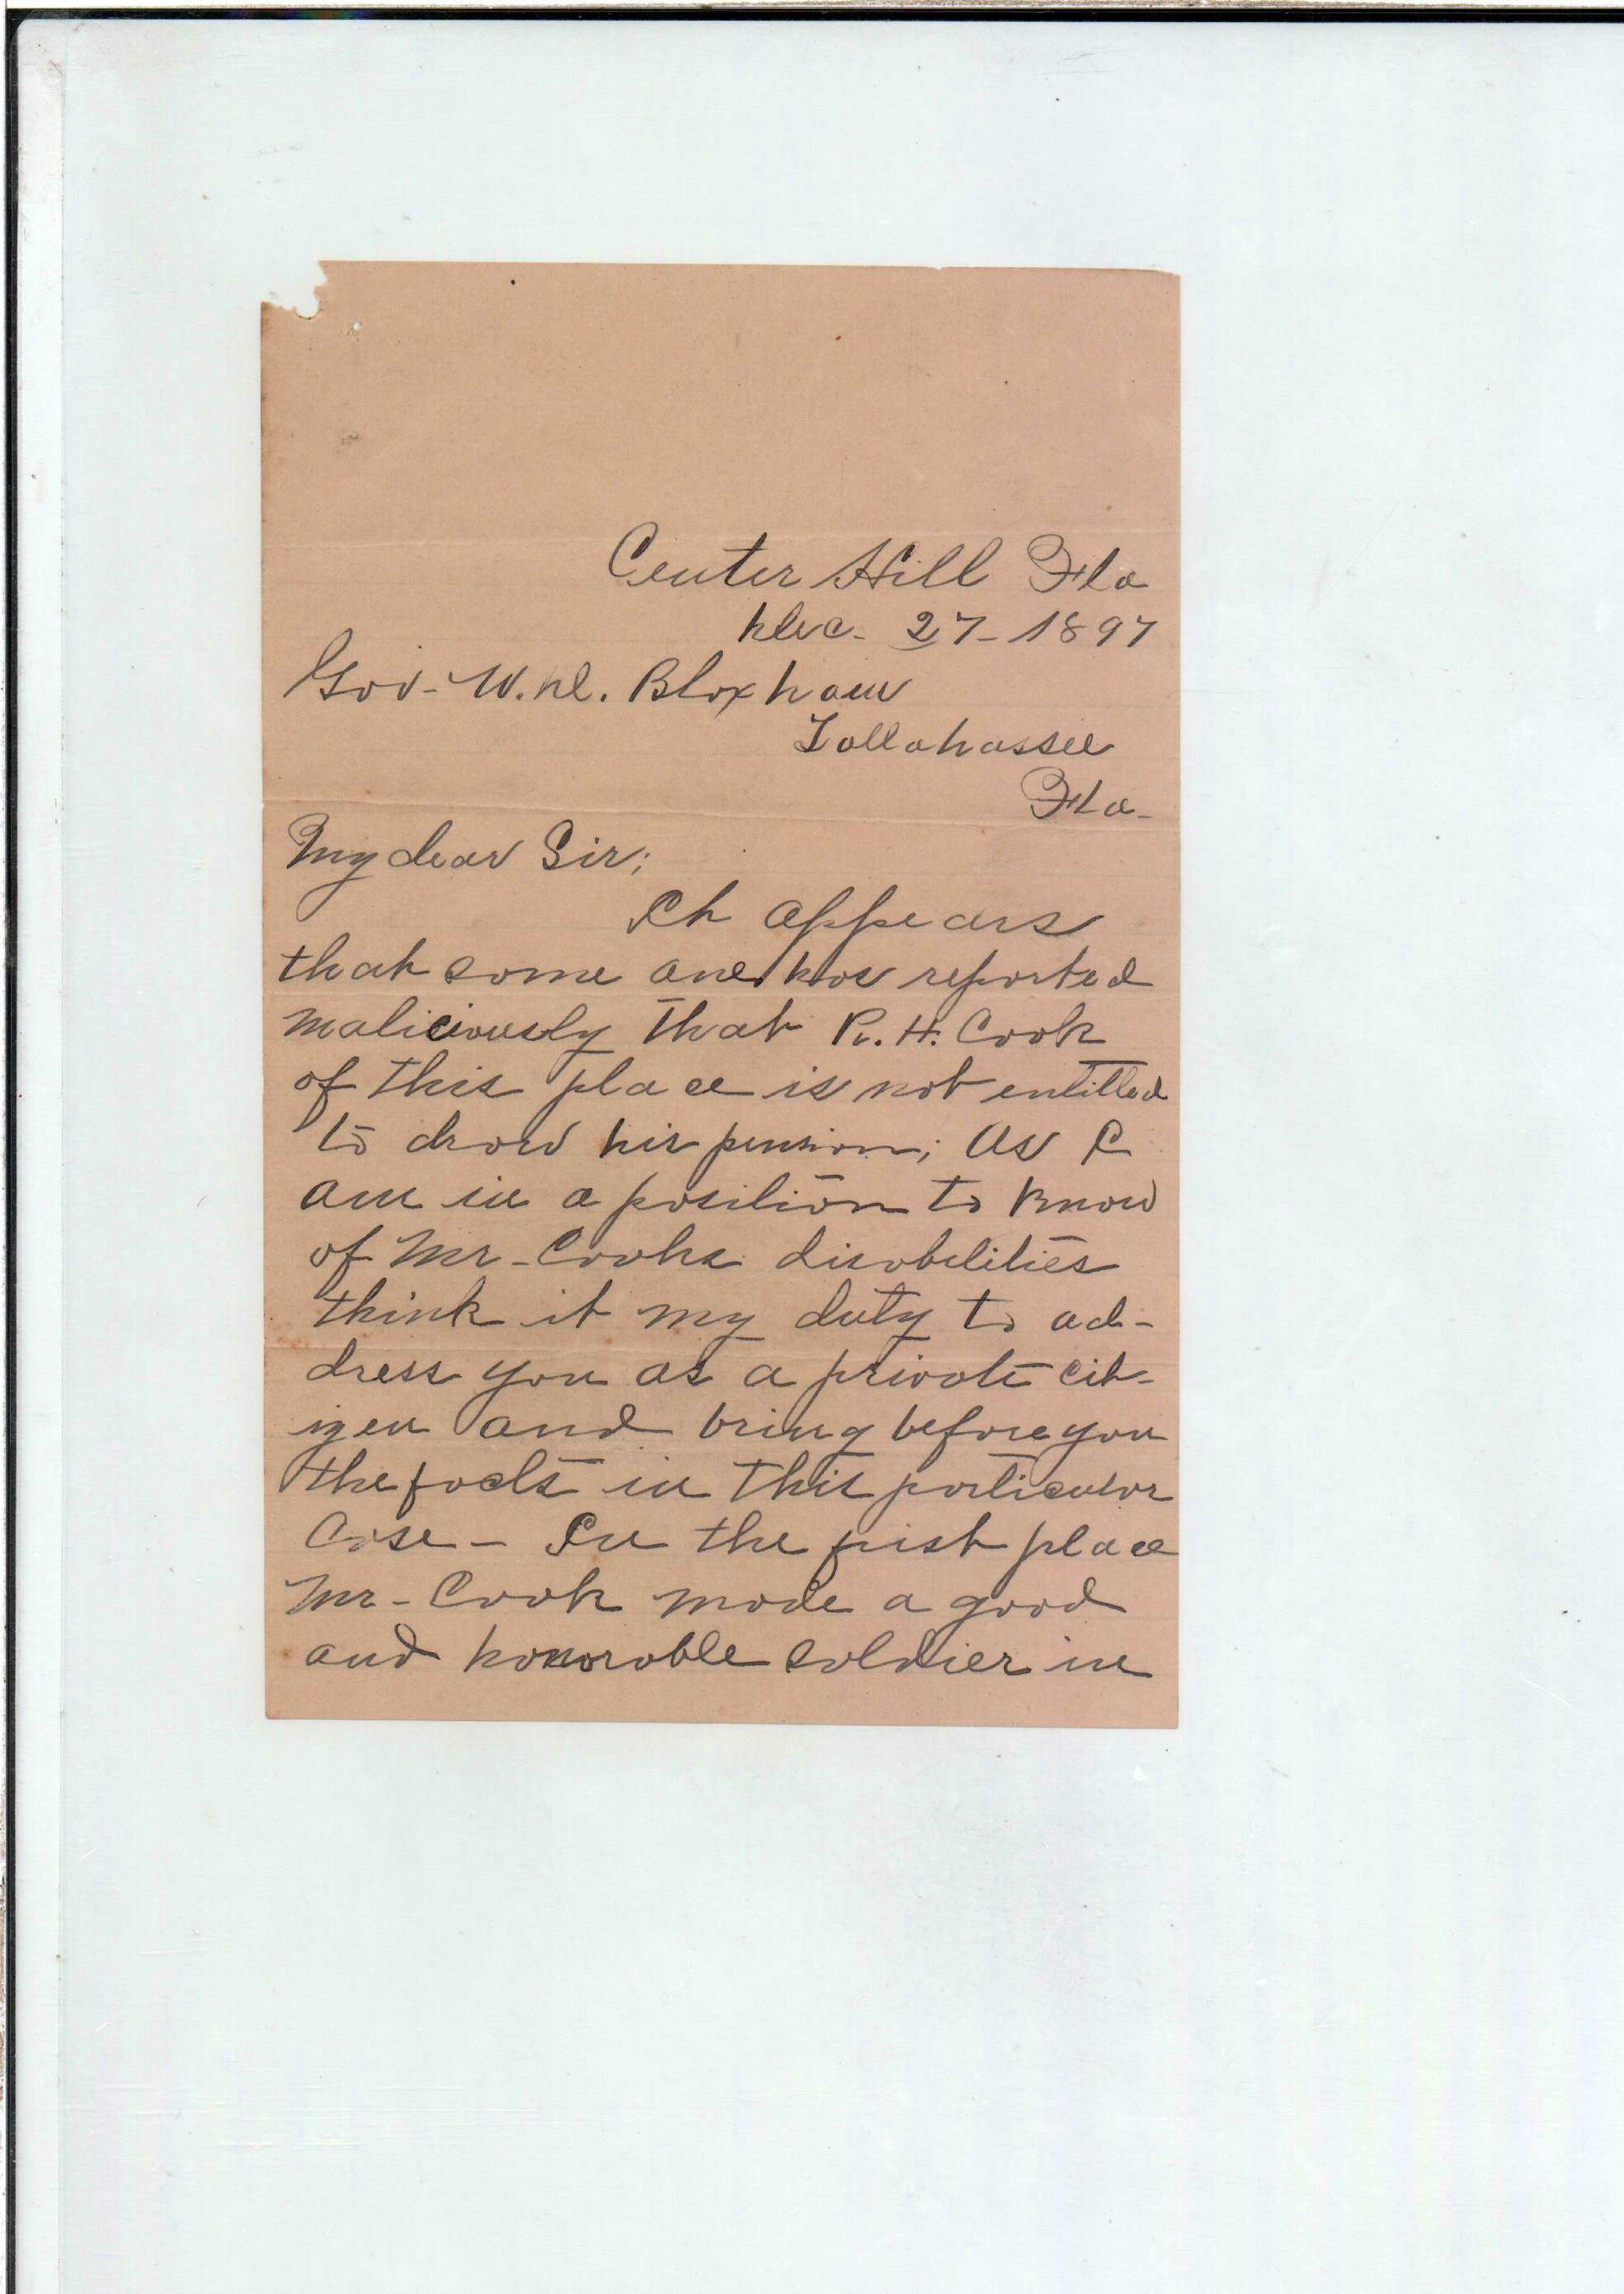 Center Hill Fla
Dec. 27-1897
Gov. W. D. Bloxham
Tallahassee
Fla.
My dear Sir;
It appears
that some one has reported
maliciously that R. H. Cook
of this place is not entitled
to draw his pension; As I
am in a position to know
of Mr. Cooks disabilities
think it my duty to ad-
dress you as a private cit-
izen and bring before you
the facts in this particular
case - In the first place
Mr. Cook made a good
and honorable soldier in